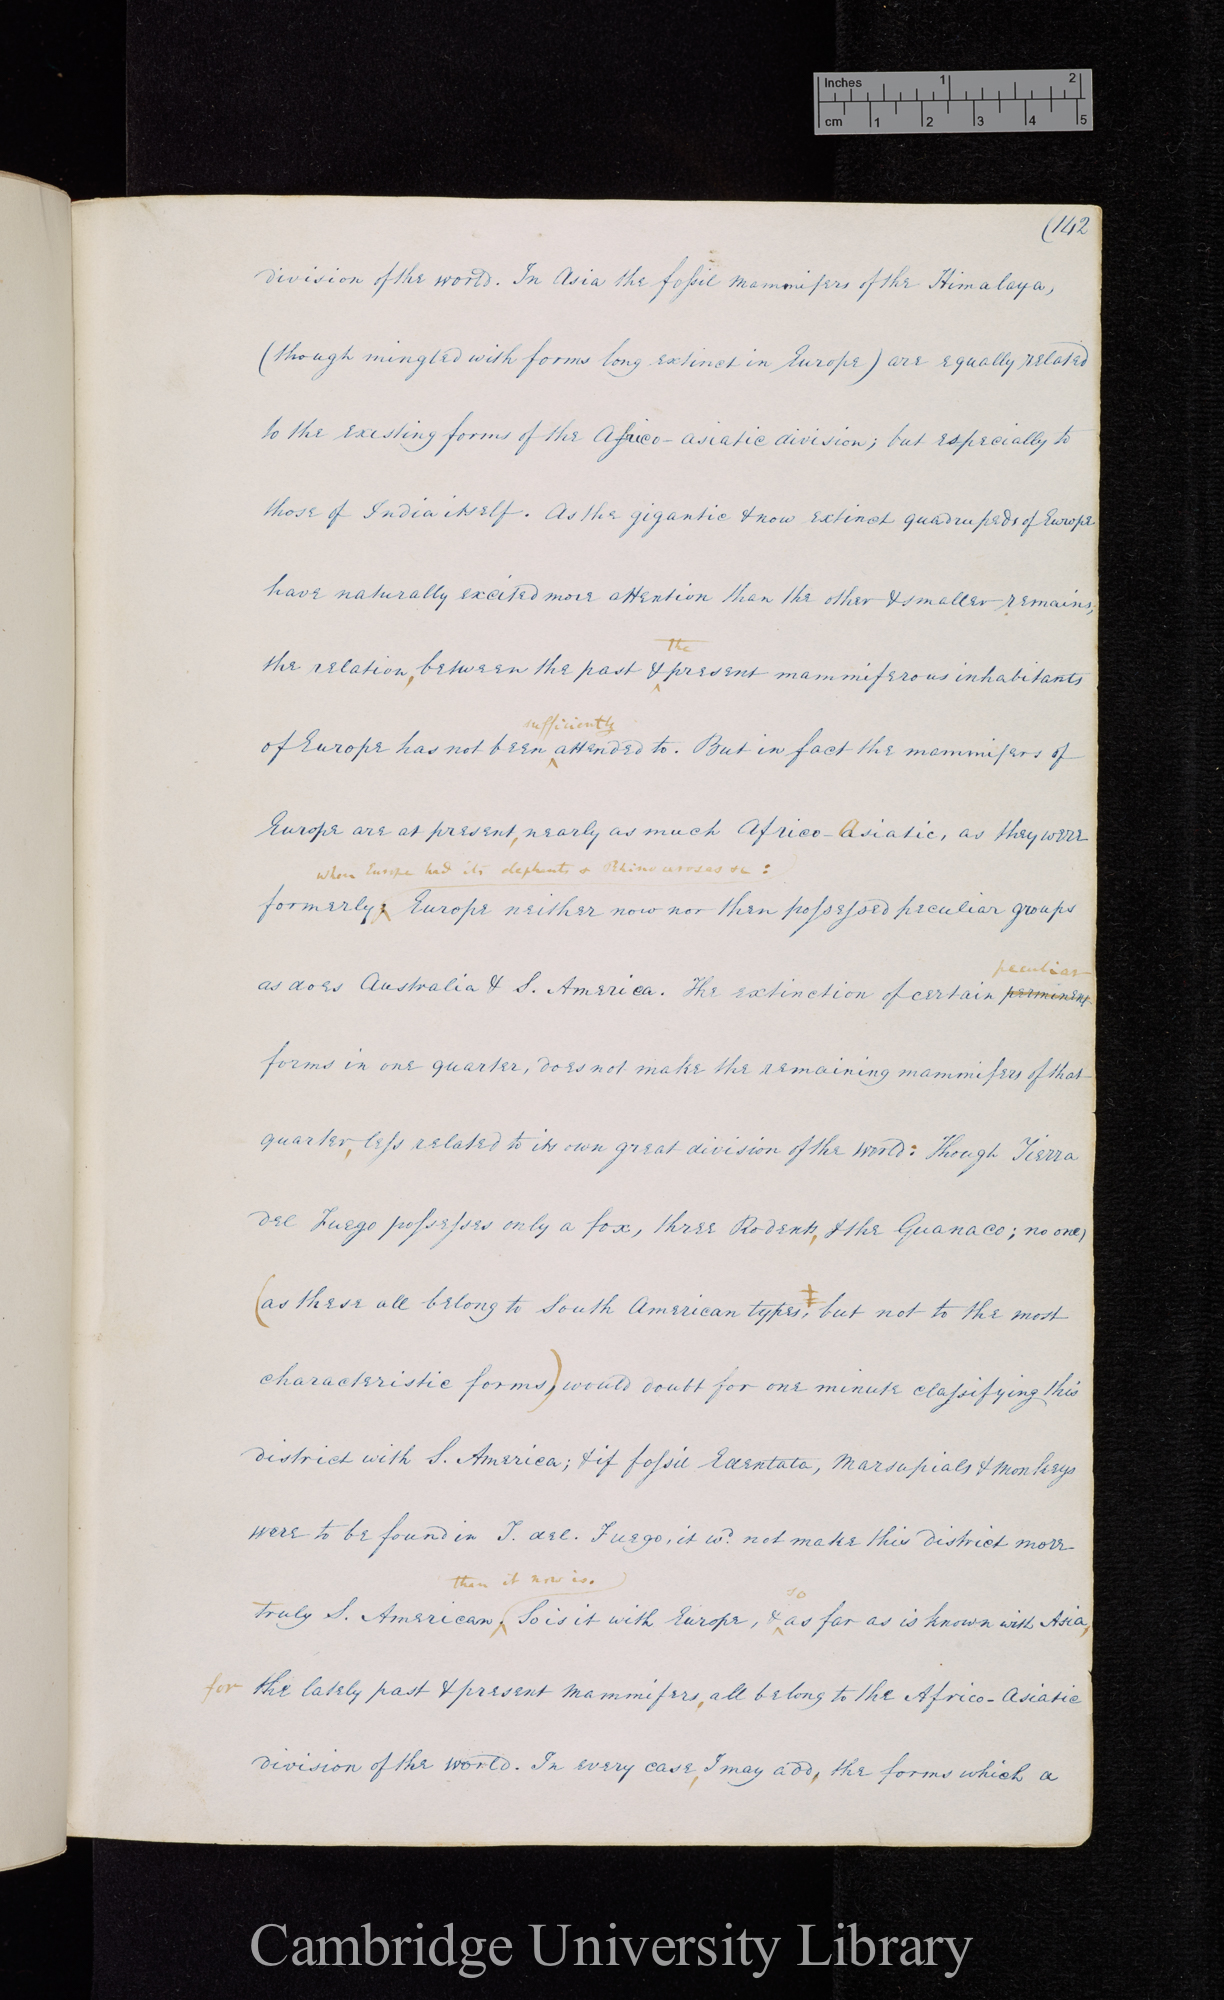 Inches 1 2
cm 1 2 3 4 5
(142
division of the world. In Asia the fossil mammifers of the Himalaya,
(though mingled with forms long extinct in Europe) are equally related
to the existing forms of the Africo-asiatic division; but especially to
those of India itself. As the gigantic & now extinct quadrupeds of Europe
have naturally excited more attention than the other & smaller remains,
the
the relation, between the past & present mammiferous inhabitants
sufficiently
of Europe has not been attended to. But in fact the mammifers of
Europe are at present, nearly as much Africo-Asiatic, as they were
when Europe had its elephants & Rhinoceroses &c:
formerly; Europe neither now nor then possessed peculiar groups
peculiar
as does Australia & S. America. The extinction of certain perminent
forms in one quarter, does not make the remaining mammifers of that
quarter, less related to its own great division of the world: Though Tierra
del Fuego possesses only a fox, three Rodents, & the Guanaco; no one,
(as these all belong to South American types, but not to the most
characteristic forms) would doubt for one minute classifying this
district with S. America; & if fossil Edentata, Marsupials & Monkeys
were to be found in T. del. Fuego, it wd. not make this district more
than it now is. so
truly S. American. So is it with Europe, & as far as is known with Asia,
for the lately past & present mammifers, all belong to the Africo-Asiatic
division of the world. In every case, I may add, the forms which a
Cambridge University Library